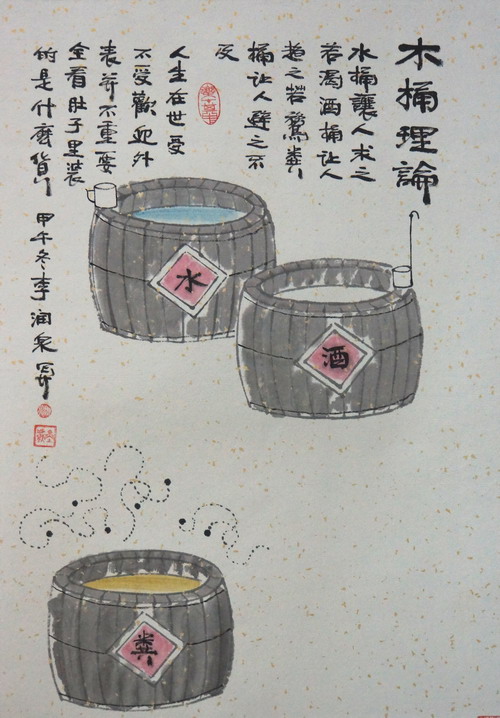 木桶理論
水桶讓人求之
若渴酒桶让人
趋之若鶩糞
桶让人避之不
及
人生在世受
不受歡迎外
表并不重要
全看肚子里装
的是什麽貨 甲午冬李润泉写
水
酒
糞